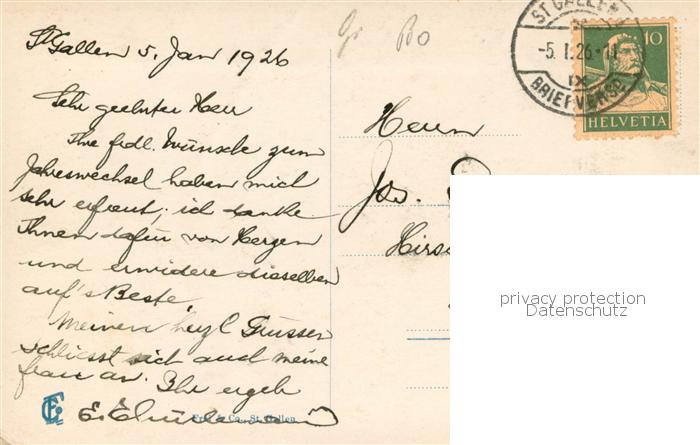 St Gallen 5. Jan 1926
Sehr geehrter Herr
Ihre frdl. Wünsche zum
Jahreswechsel haben mich
sehr erfreut; ich danke
Ihnen dafür von Herzen
und erwidere dieselben
auf's Beste.
Meinen herzl Grüssen
schliesst sich auch meine
frau an. Ihr ergeb
E.
Co., St. Gallen
Bo
Herrn
Jos.
Hirs
ST GALLEN
-5. I. 26 - 11
IX
BRIEFVERSD.
10
HELVETIA
privacy protection
Datenschutz